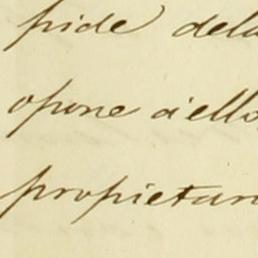 pide dela
opone á ello
propietari